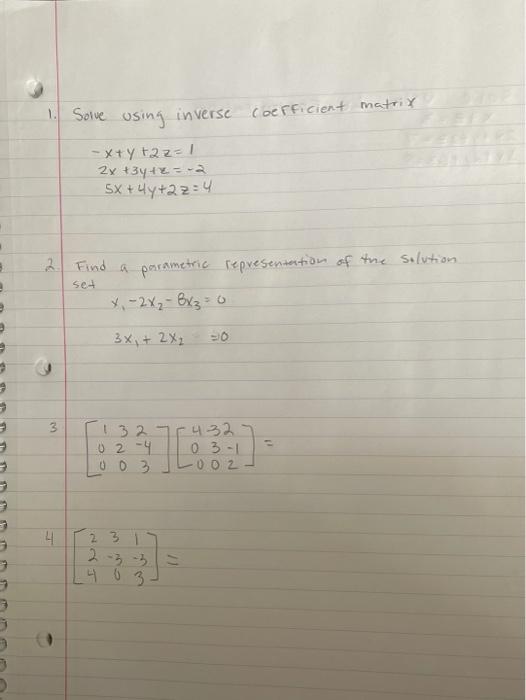 1. Solve using inverse coefficient matrix
-x+y+2z=1
2x+3y+z=-2
5x+4y+2z=4
2. Find a parametric representation of the solution
set
x₁-2x₂-8x₃=0
3x₁+2x₂ =0
3 [1 3 2] [4-32] =
[0 2 -4] [0 3 -1]
[0 0 3] [0 0 2]
4 [2 3 1] =
[2 -3 -3]
[4 0 3]